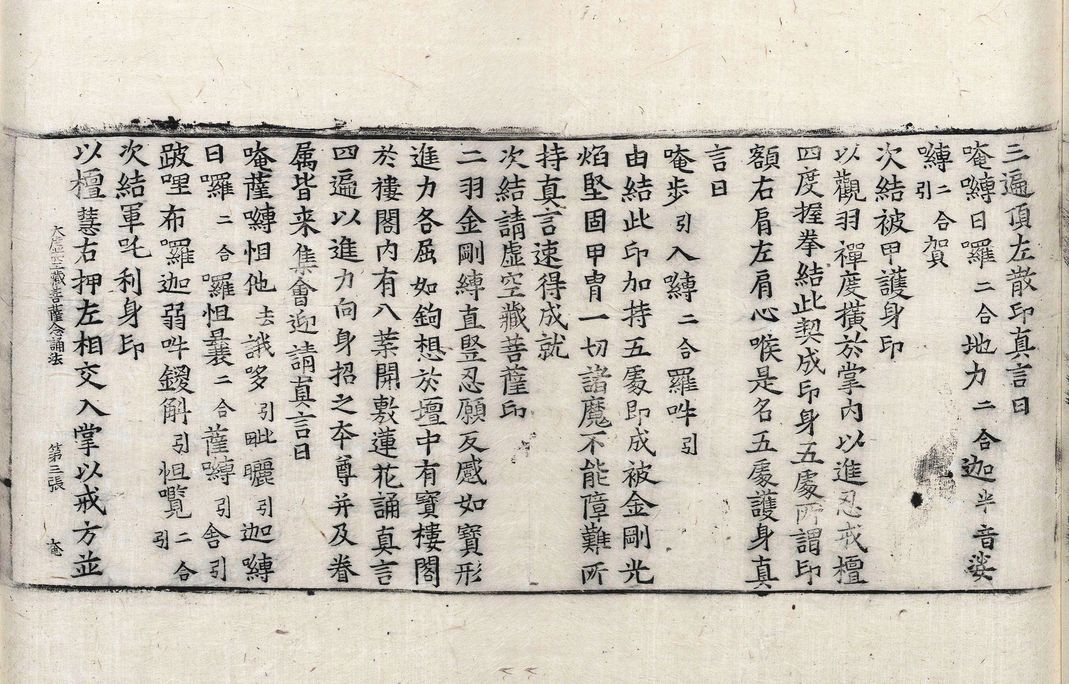 三遍頂左散印真言曰
唵嚩日囉二合地力二合迦半音娑
嚩二合引賀
次結被甲護身印
以觀羽禪度橫於掌內以進忍戒檀
四度握拳結此契成印身五處所謂印
額右肩左肩心喉是名五處護身真
言曰
唵步引入嚩二合羅吽引
由結此印加持五處即成被金剛光
焰堅固甲冑一切諸魔不能障難所
持真言速得成就
次結請虛空藏菩薩印
二羽金剛縛直竪忍願反蹙如寶形
進力各屈如鉤想於壇中有寶樓閣
於樓閣內有八葉開敷蓮花誦真言
四遍以進力向身招之夲尊并及眷
属皆来集會迎請真言曰
唵薩嚩怛他去誐哆引毗㘑引迦嚩
日囉二合囉怛曩二合薩嚩引舍引
跛哩布囉迦弱吽鑁斛引怛覽二合引
次結軍吒利身印
以檀慧右押左相交入掌以戒方並
大虛空藏菩薩念誦法 第三張 庵